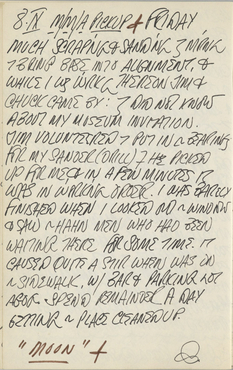 8 IX M/M/A PICKUP + FRIDAY
MUCH SCRAPING & SANDING
BRING BASE INTO ALIGNMENT, &
WHILE I WS WRKG THEREON JIM &
CHUCK CAME BY: I DID NOT KNOW
ABOUT MY MUSEUM INVITATION.
JIM VOLUNTEERED T PUT IN ~ BEARING
FOR MY SANDER (DRILL) I HAS PICKED
UP FOR ME & IN A FEW MINUTES IT
WAS IN WRKING ORDER. I WAS BARELY
FINISHED WHEN I LOOKED OUT ~ WINDOW
& SAW ~ HAHN MEN WHO HAD BEEN
WAITING THERE FOR SOME TIME. IT
CAUSED QUITE A STIR WHEN WAS ON
~ SIDEWALK, W/ BAR & PARKING LOT
SPEND REMAINDER A DAY
GETTING ~ PLACE CLEANED UP.
"MOON" +